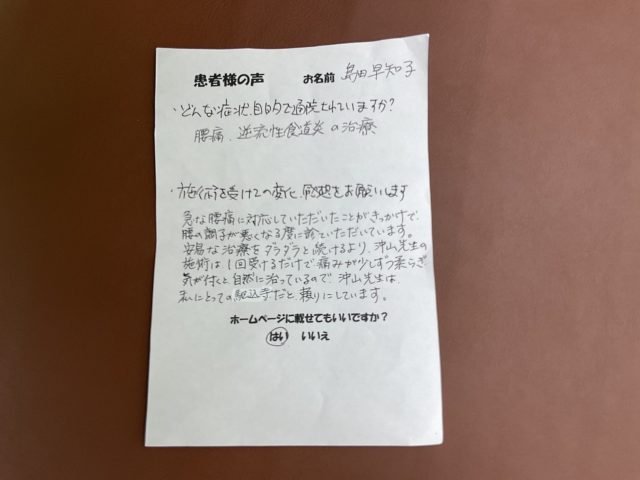 患者様の声 お名前 島田早知子
・どんな症状、目的で通院されていますか?
腰痛、逆流性食道炎の治療
・施術を受けての変化、感想をお願いします
急な腰痛に対応していただいたことがきっかけで、
腰の調子が悪くなる度に診ていただいています。
安易な治療をダラダラと続けるより、沖山先生の
施術は1回受けるだけで痛みが少しずつ柔らぎ
気が付くと自然に治っているので、沖山先生は、
私にとっての駆込寺だと頼りにしています。
ホームページに載せてもいいですか?
はい いいえ